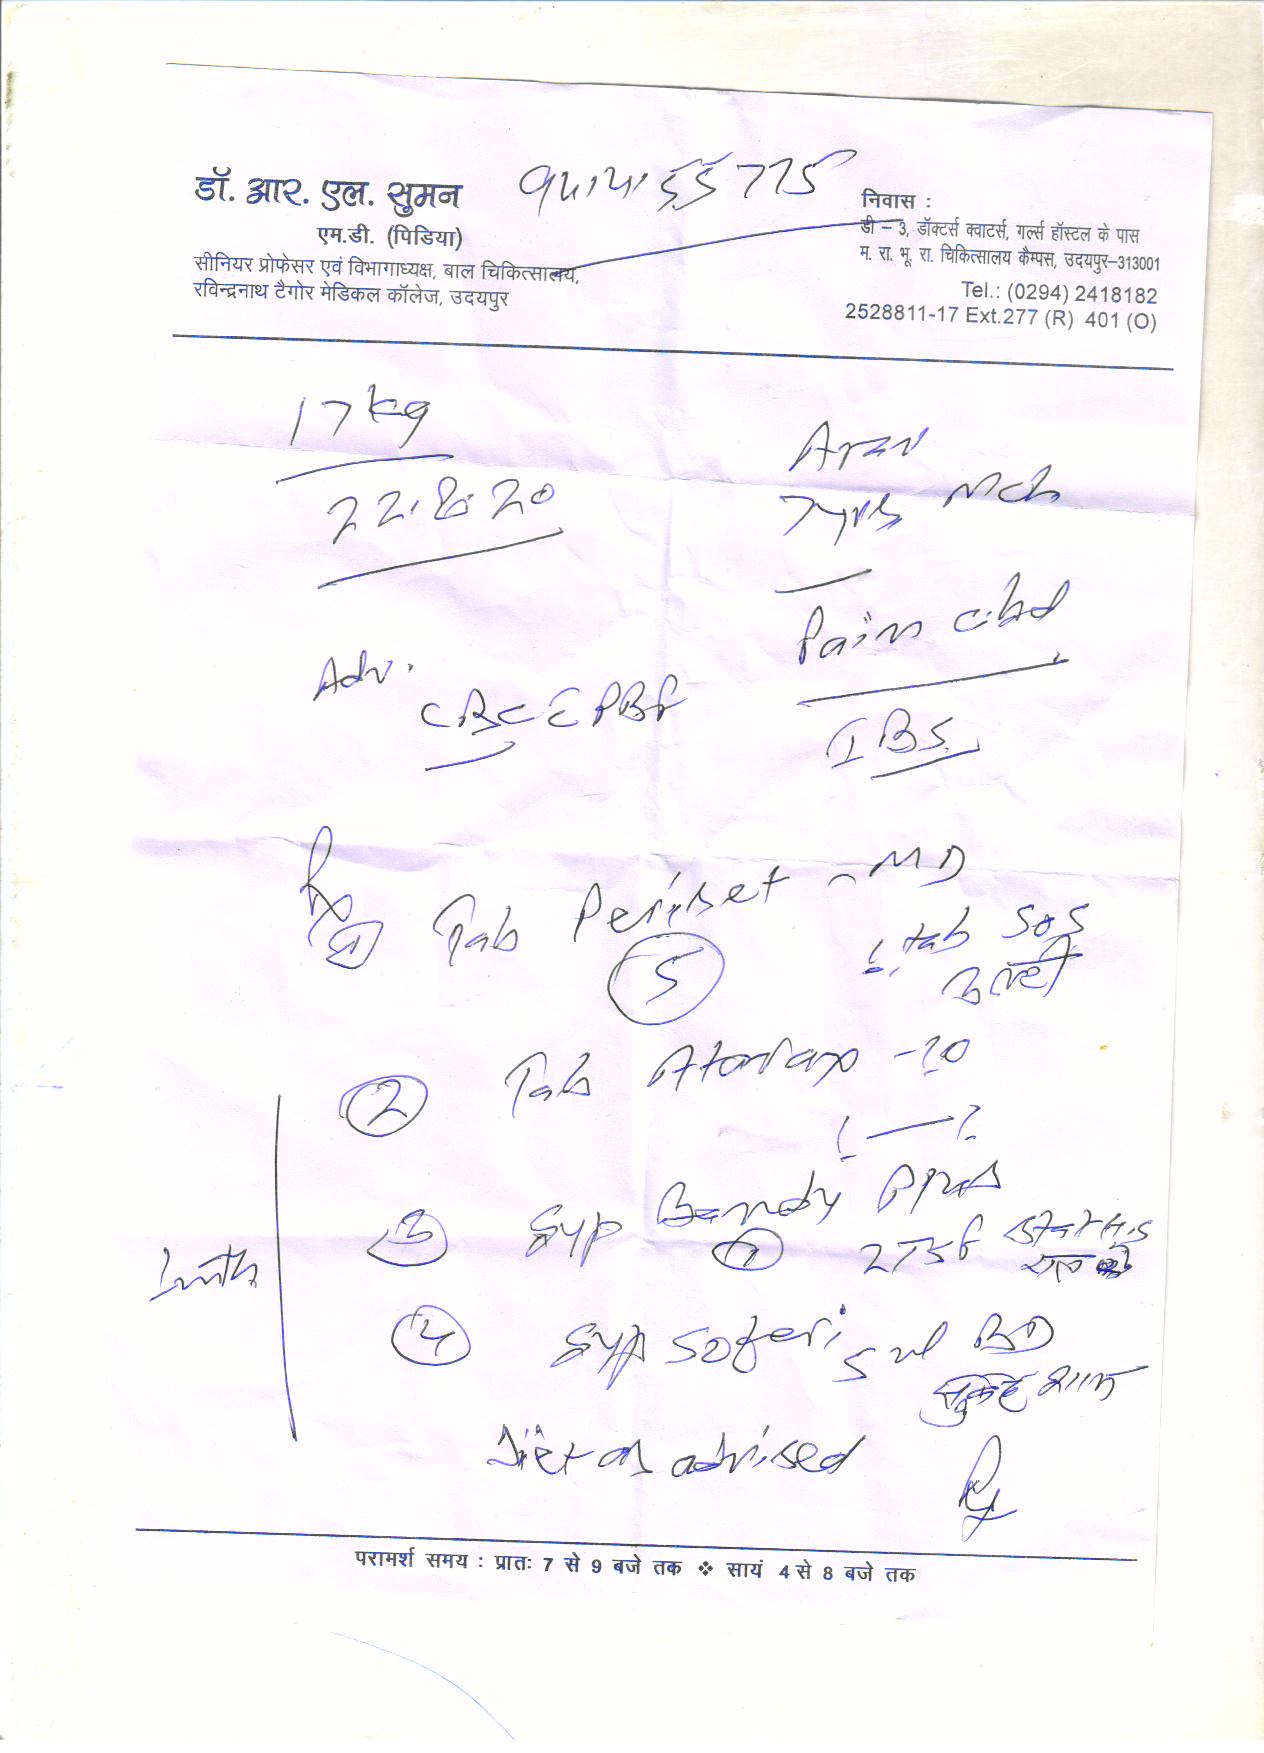 डॉ. आर. एल. सुमन
एम.डी. (पिडिया)
सीनियर प्रोफेसर एवं विभागाध्यक्ष, बाल चिकित्सालय,
रविन्द्रनाथ टैगोर मेडिकल कॉलेज, उदयपुर
निवास :
डी – 3, डॉक्टर्स क्वाटर्स, गर्ल्स हॉस्टल के पास
म. रा. भू. रा. चिकित्सालय कैम्पस, उदयपुर–313001
Tel.: (0294) 2418182
2528811-17 Ext.277 (R) 401 (O)
17 kg
22.8.20
7yrs Mch
Pain abd
IBS
Adv.
CBC PBF
Tab Periset - MD
5
1 tab SOS
उल्टी
2 Tab Atarax - 10
3 Syp Bandy Plus
1
4 Syp 5 ml BD
सुबह शाम
Diet as advised
परामर्श समय : प्रातः 7 से 9 बजे तक ❖ सायं 4 से 8 बजे तक